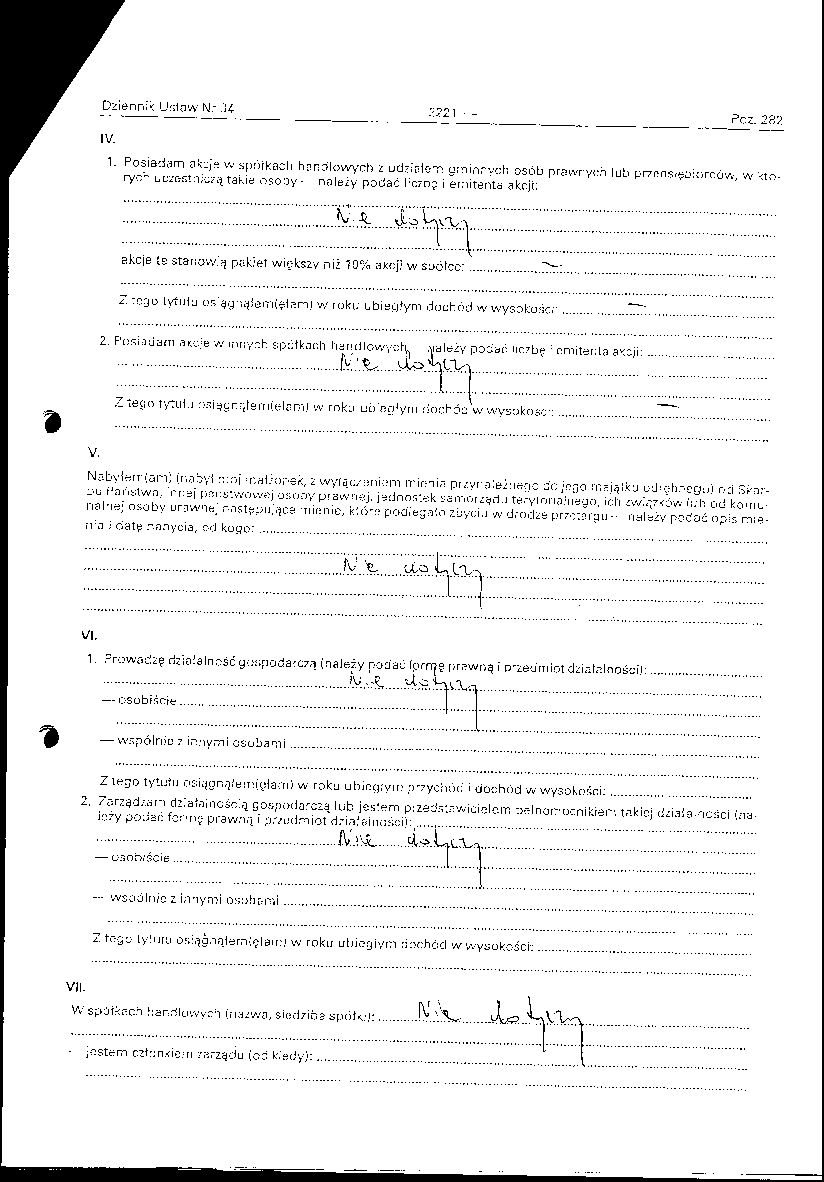 Dziennik Ustaw Nr 34 — 2221 — Poz. 282
IV.
1. Posiadam akcje w spółkach handlowych z udziałem gminnych osób prawnych lub przedsiębiorców, w któ-
rych uczestniczą takie osoby — należy podać liczbę i emitenta akcji:
Nie dotyczy
akcje te stanowią pakiet większy niż 10% akcji w spółce: —
Z tego tytułu osiągnąłem(ęłam) w roku ubiegłym dochód w wysokości: —
2. Posiadam akcje w innych spółkach handlowych — należy podać liczbę i emitenta akcji:
Nie dotyczy
Z tego tytułu osiągnąłem(ęłam) w roku ubiegłym dochód w wysokości: —
V.
Nabyłem(am) (nabył mój małżonek, z wyłączeniem mienia przynależnego do jego majątku odrębnego) od Skar-
bu Państwa, innej państwowej osoby prawnej, jednostek samorządu terytorialnego, ich związków lub od komu-
nalnej osoby prawnej następujące mienie, które podlegało zbyciu w drodze przetargu — należy podać opis mie-
nia i datę nabycia, od kogo:
Nie dotyczy
VI.
1. Prowadzę działalność gospodarczą (należy podać formę prawną i przedmiot działalności):
Nie dotyczy
— osobiście
— wspólnie z innymi osobami
Z tego tytułu osiągnąłem(ęłam) w roku ubiegłym przychód i dochód w wysokości:
2. Zarządzam działalnością gospodarczą lub jestem przedstawicielem pełnomocnikiem takiej działalności (na-
leży podać formę prawną i przedmiot działalności):
Nie dotyczy
— osobiście
— wspólnie z innymi osobami
Z tego tytułu osiągnąłem(ęłam) w roku ubiegłym dochód w wysokości:
VII.
W spółkach handlowych (nazwa, siedziba spółki): Nie dotyczy
- jestem członkiem zarządu (od kiedy):